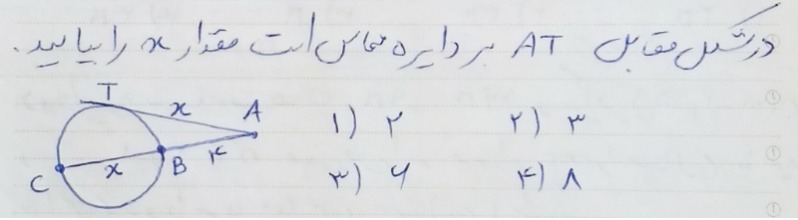 در شکل مقابل AT بر دایره مماس است مقدار x را بیابید.
T x A
۱) ۲ ۲) ۳
C x B ۴
۳) ۶ ۴) ۸